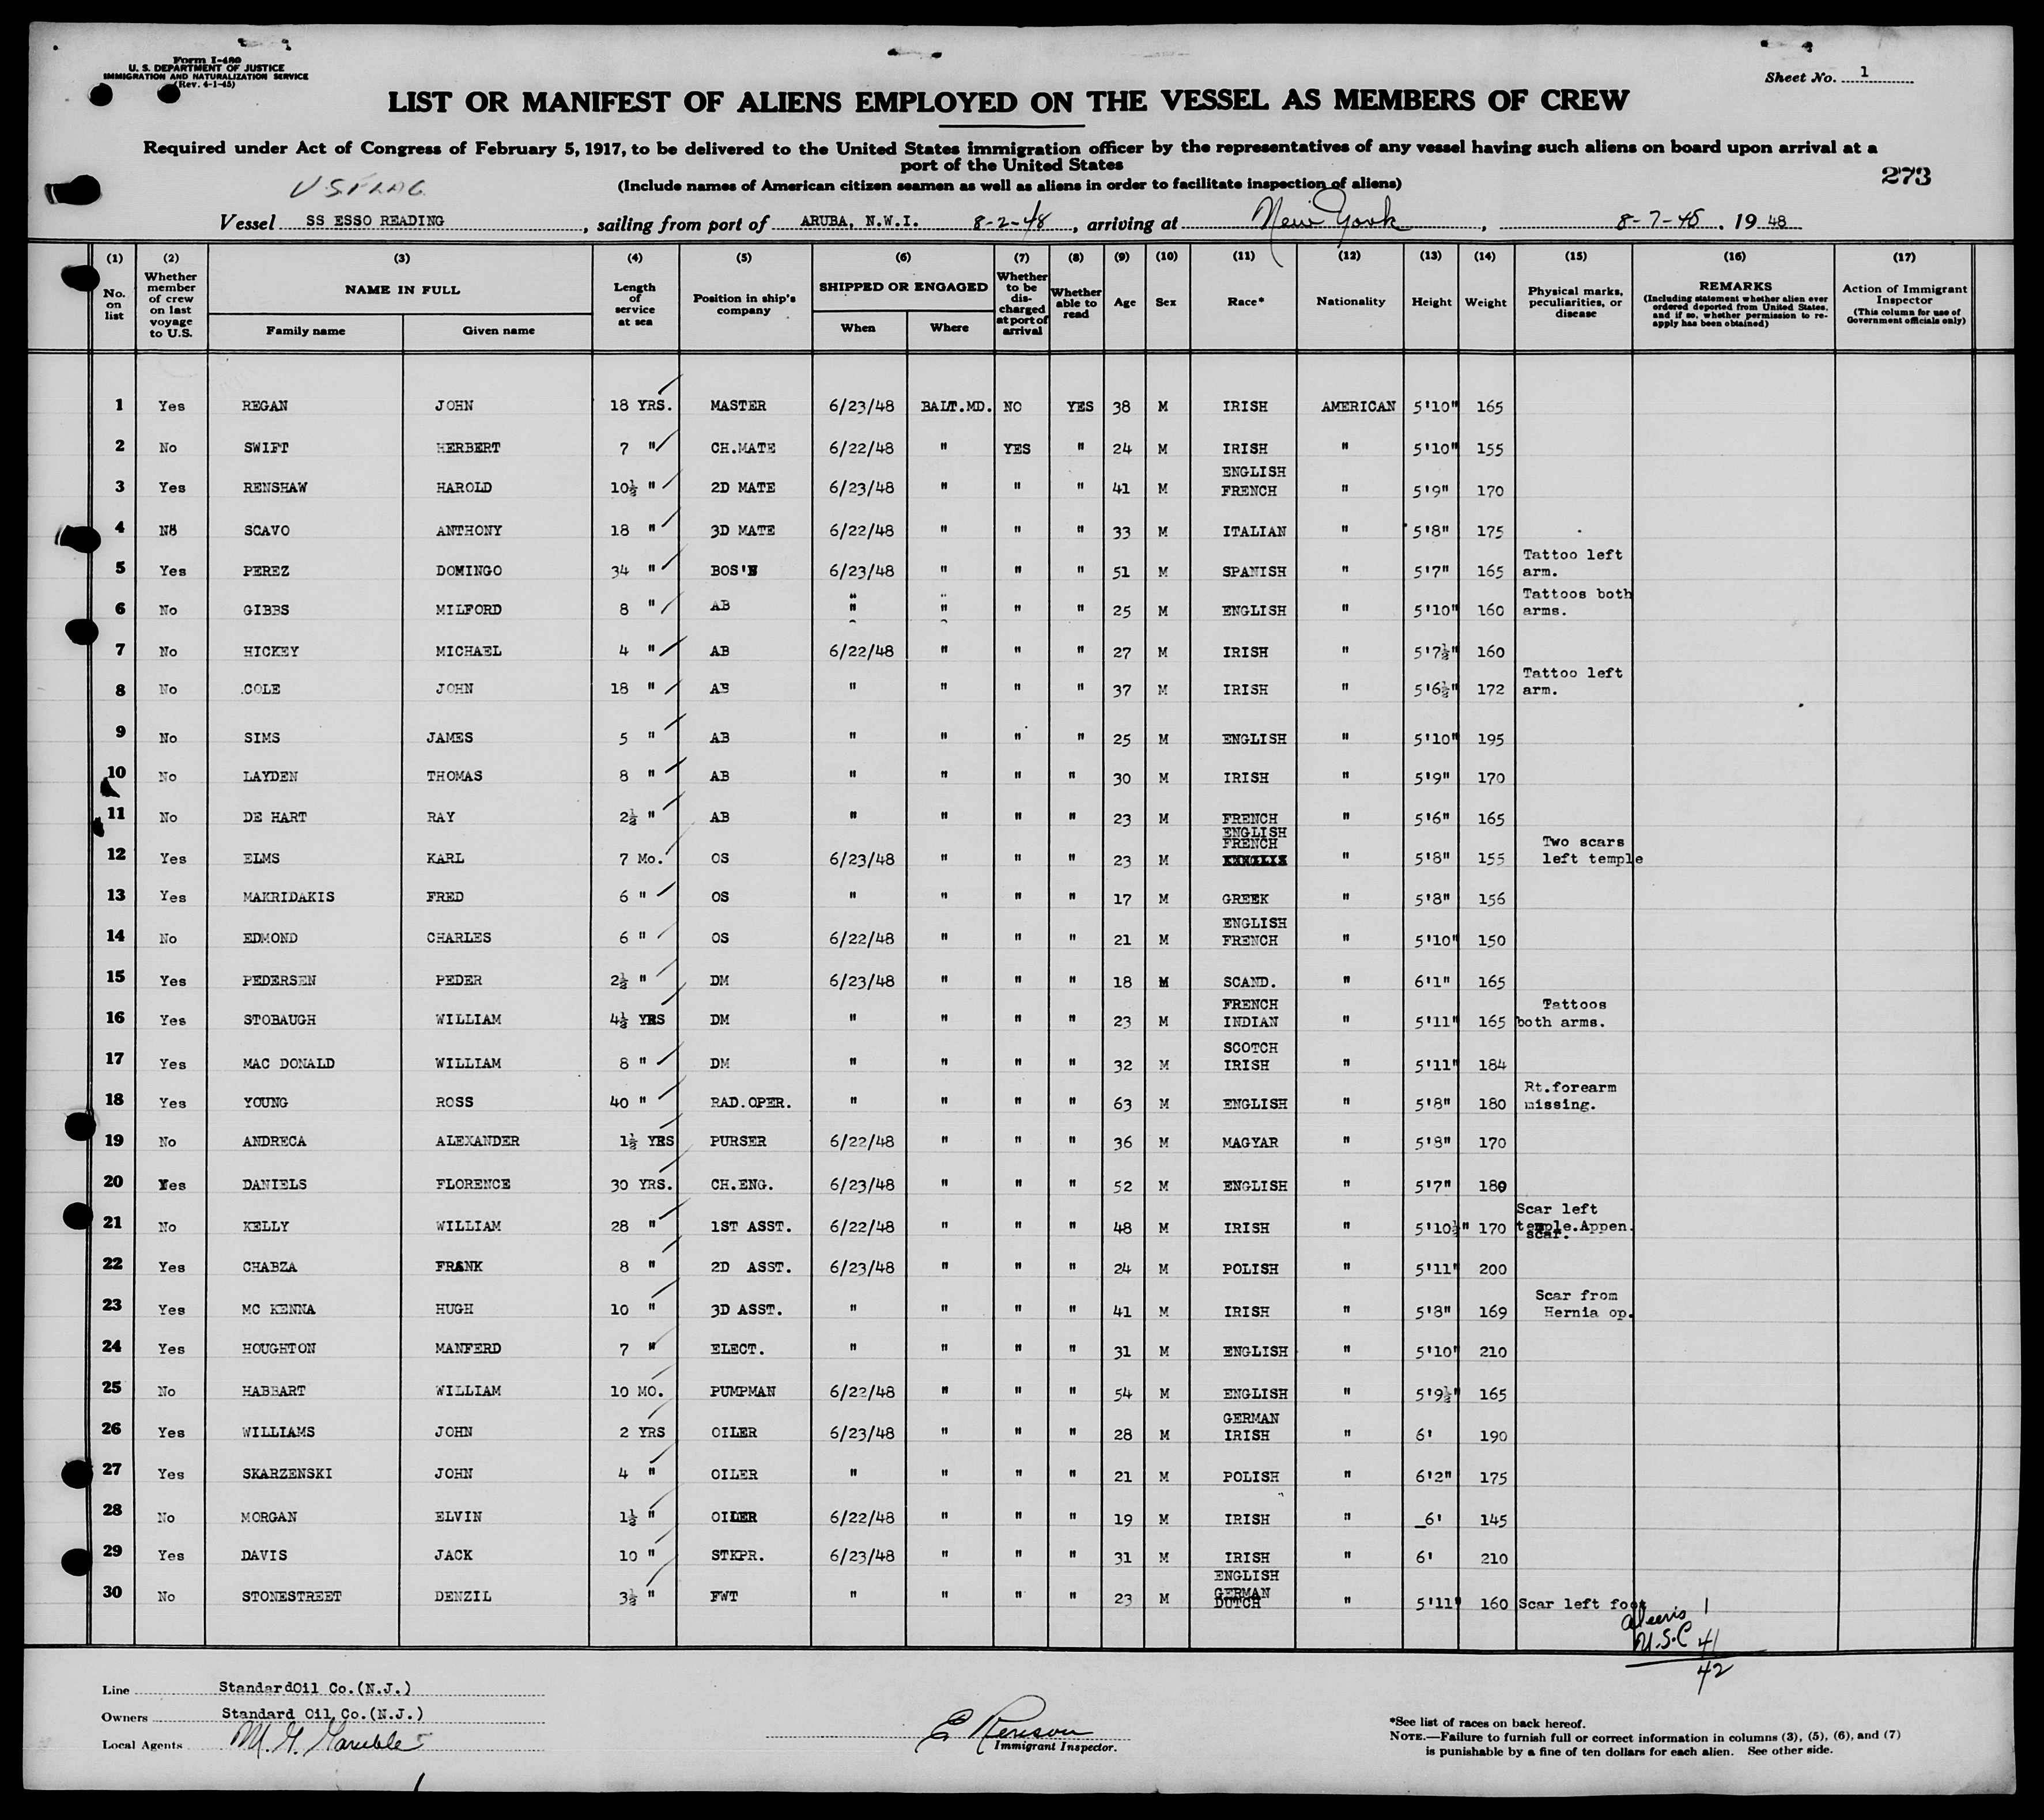 Form I-480
U. S. DEPARTMENT OF JUSTICE
IMMIGRATION AND NATURALIZATION SERVICE
(Rev. 4-1-45)
Sheet No. 1
LIST OR MANIFEST OF ALIENS EMPLOYED ON THE VESSEL AS MEMBERS OF CREW
Required under Act of Congress of February 5, 1917, to be delivered to the United States immigration officer by the representatives of any vessel having such aliens on board upon arrival at a
port of the United States
273
US FLAG
(Include names of American citizen seamen as well as aliens in order to facilitate inspection of aliens)
Vessel SS ESSO READING, sailing from port of ARUBA, N.W.I. 8-2-48, arriving at New York, 8-7-48. 19 48
(1) No. on list
(2) Whether member of crew on last voyage to U.S.
(3) NAME IN FULL Family name Given name
(4) Length of service at sea
(5) Position in ship's company
(6) SHIPPED OR ENGAGED When Where
(7) Whether to be discharged at port of arrival
(8) Whether able to read
(9) Age
(10) Sex
(11) Race*
(12) Nationality
(13) Height
(14) Weight
(15) Physical marks, peculiarities, or disease
(16) REMARKS (Including statement whether alien ever ordered deported from United States, and if so, whether permission to re-apply has been obtained)
(17) Action of Immigrant Inspector (This column for use of Government officials only)
1 Yes REGAN JOHN 18 YRS. MASTER 6/23/48 BALT.MD. NO YES 38 M IRISH AMERICAN 5'10" 165
2 No SWIFT HERBERT 7 " CH.MATE 6/22/48 " YES " 24 M IRISH " 5'10" 155
3 Yes RENSHAW HAROLD 10½ " 2D MATE 6/23/48 " " " 41 M ENGLISH FRENCH " 5'9" 170
4 No SCAVO ANTHONY 18 " 3D MATE 6/22/48 " " " 33 M ITALIAN " 5'8" 175
5 Yes PEREZ DOMINGO 34 " BOS'N 6/23/48 " " " 51 M SPANISH " 5'7" 165 Tattoo left arm.
6 No GIBBS MILFORD 8 " AB " " " " 25 M ENGLISH " 5'10" 160 Tattoos both arms.
7 No HICKEY MICHAEL 4 " AB 6/22/48 " " " 27 M IRISH " 5'7½" 160
8 No COLE JOHN 18 " AB " " " " 37 M IRISH " 5'6½" 172 Tattoo left arm.
9 No SIMS JAMES 5 " AB " " " " 25 M ENGLISH " 5'10" 195
10 No LAYDEN THOMAS 8 " AB " " " " 30 M IRISH " 5'9" 170
11 No DE HART RAY 2½ " AB " " " " 23 M FRENCH " 5'6" 165
12 Yes ELMS KARL 7 Mo. OS 6/23/48 " " " 23 M ENGLISH FRENCH " 5'8" 155 Two scars left temple
13 Yes MAKRIDAKIS FRED 6 " OS " " " " 17 M GREEK " 5'8" 156
14 No EDMOND CHARLES 6 " OS 6/22/48 " " " 21 M ENGLISH FRENCH " 5'10" 150
15 Yes PEDERSEN PEDER 2½ " DM 6/23/48 " " " 18 M SCAND. " 6'1" 165
16 Yes STOBAUGH WILLIAM 4½ YRS DM " " " " 23 M FRENCH INDIAN " 5'11" 165 Tattoos both arms.
17 Yes MAC DONALD WILLIAM 8 " DM " " " " 32 M SCOTCH IRISH " 5'11" 184
18 Yes YOUNG ROSS 40 " RAD.OPER. " " " " 63 M ENGLISH " 5'8" 180 Rt.forearm missing.
19 No ANDRECA ALEXANDER 1½ YRS PURSER 6/22/48 " " " 36 M MAGYAR " 5'8" 170
20 Yes DANIELS FLORENCE 30 YRS. CH.ENG. 6/23/48 " " " 52 M ENGLISH " 5'7" 180
21 No KELLY WILLIAM 28 " 1ST ASST. 6/22/48 " " " 48 M IRISH " 5'10½" 170 Scar left temple.Appen. scar.
22 Yes CHABZA FRANK 8 " 2D ASST. 6/23/48 " " " 24 M POLISH " 5'11" 200
23 Yes MC KENNA HUGH 10 " 3D ASST. " " " " 41 M IRISH " 5'8" 169 Scar from Hernia op.
24 Yes HOUGHTON MANFERD 7 " ELECT. " " " " 31 M ENGLISH " 5'10" 210
25 No HABBART WILLIAM 10 MO. PUMPMAN 6/22/48 " " " 54 M ENGLISH " 5'9½" 165
26 Yes WILLIAMS JOHN 2 YRS OILER 6/23/48 " " " 28 M GERMAN IRISH " 6' 190
27 Yes SKARZENSKI JOHN 4 " OILER " " " " 21 M POLISH " 6'2" 175
28 No MORGAN ELVIN 1½ " OILER 6/22/48 " " " 19 M IRISH " 6' 145
29 Yes DAVIS JACK 10 " STKPR. 6/23/48 " " " 31 M IRISH " 6' 210
30 No STONESTREET DENZIL 3½ " FWT " " " " 23 M ENGLISH GERMAN DUTCH " 5'11" 160 Scar left foot
Aliens 1
U.S.C 41
42
Line StandardOil Co.(N.J.)
Owners Standard Oil Co.(N.J.)
Local Agents M. G. Gamble
Immigrant Inspector.
*See list of races on back hereof.
NOTE.—Failure to furnish full or correct information in columns (3), (5), (6), and (7)
is punishable by a fine of ten dollars for each alien. See other side.